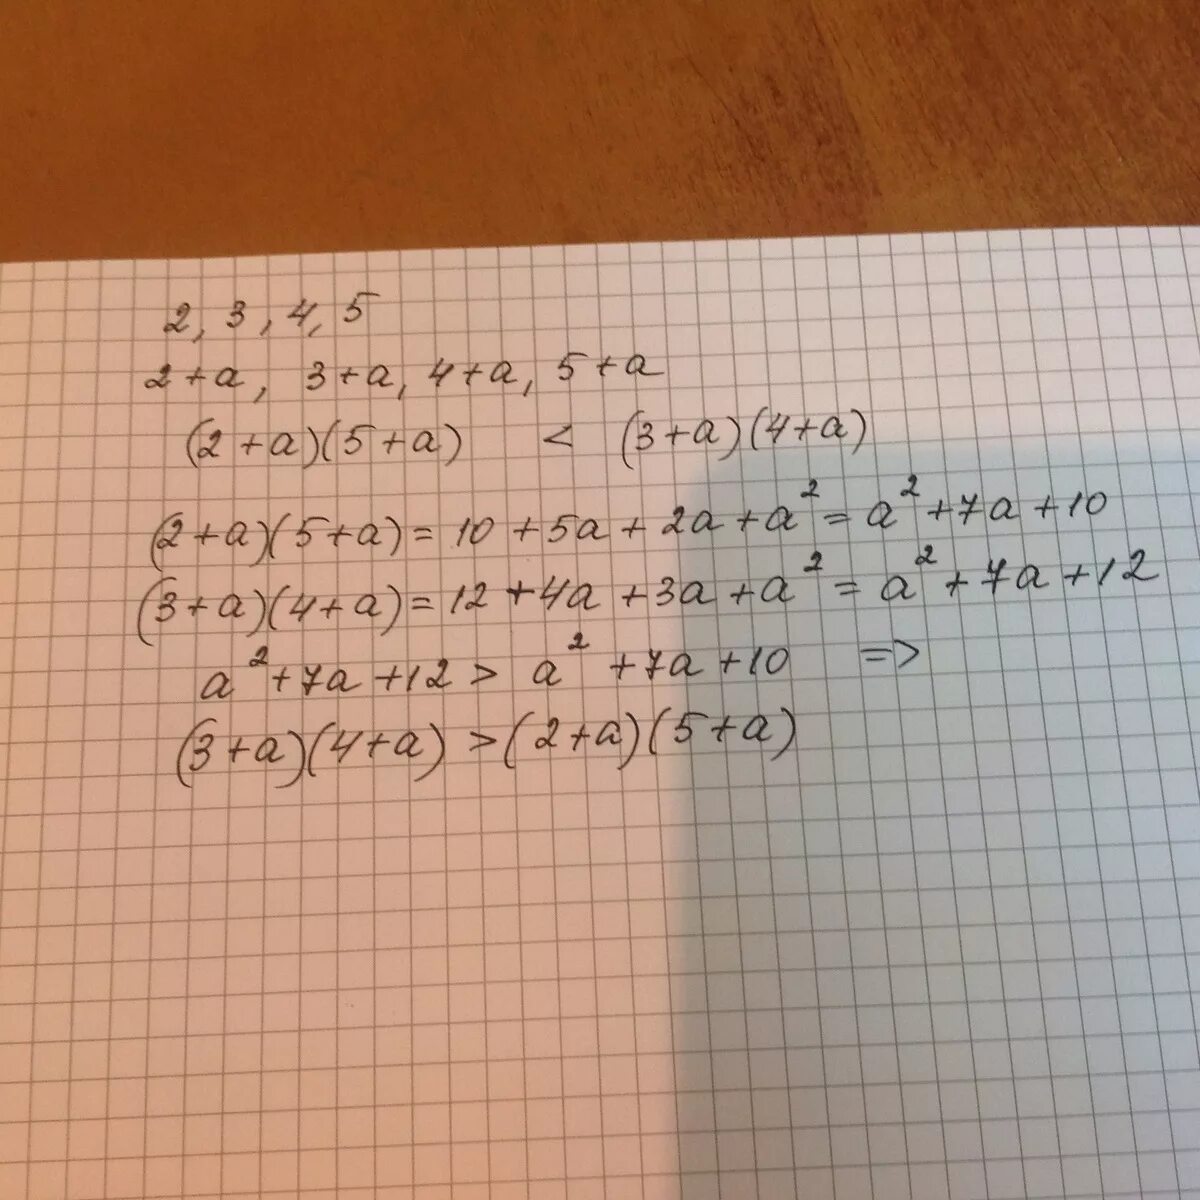 2, 3, 4, 5
2+a, 3+a, 4+a, 5+a
(2+a)(5+a) < (3+a)(4+a)
(2+a)(5+a) = 10 + 5a + 2a + a² = a² + 7a + 10
(3+a)(4+a) = 12 + 4a + 3a + a² = a² + 7a + 12
a² + 7a + 12 > a² + 7a + 10 =>
(3+a)(4+a) > (2+a)(5+a)